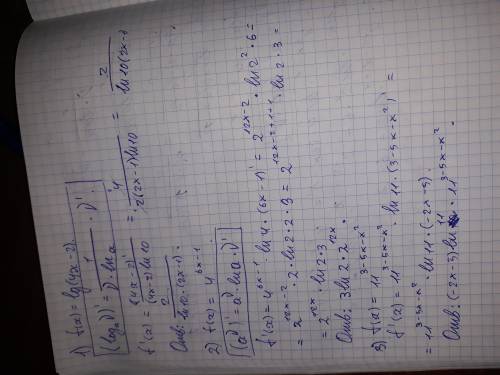 1) f(x) = lg(4x-2)
(logₐ V)' = 1/(V · ln a) · V'.
f'(x) = (4x-2)'/((4x-2) ln10) = 4/(2(2x-1) ln10) = 2/(ln10(2x-1))
Отв: 2/(ln10·(2x-1)).
2) f(x) = 4^(6x-1)
(a^V)' = a^V · ln a · V'.
f'(x) = 4^(6x-1) · ln4 · (6x-1)' = 2^(12x-2) · ln2² · 6 =
= 2^(12x-2) · 2 · ln2 · 2 · 3 = 2^(12x-2+1+1) · ln2 · 3 =
= 2^(12x) · ln2 · 3
Отв: 3ln2 · 2^(12x).
3) f(x) = 11^(3-5x-x²)
f'(x) = 11^(3-5x-x²) · ln11 · (3-5x-x²)' =
= 11^(3-5x-x²) · ln11 · (-2x-5)
Отв: (-2x-5) ln11 · 11^(3-5x-x²).